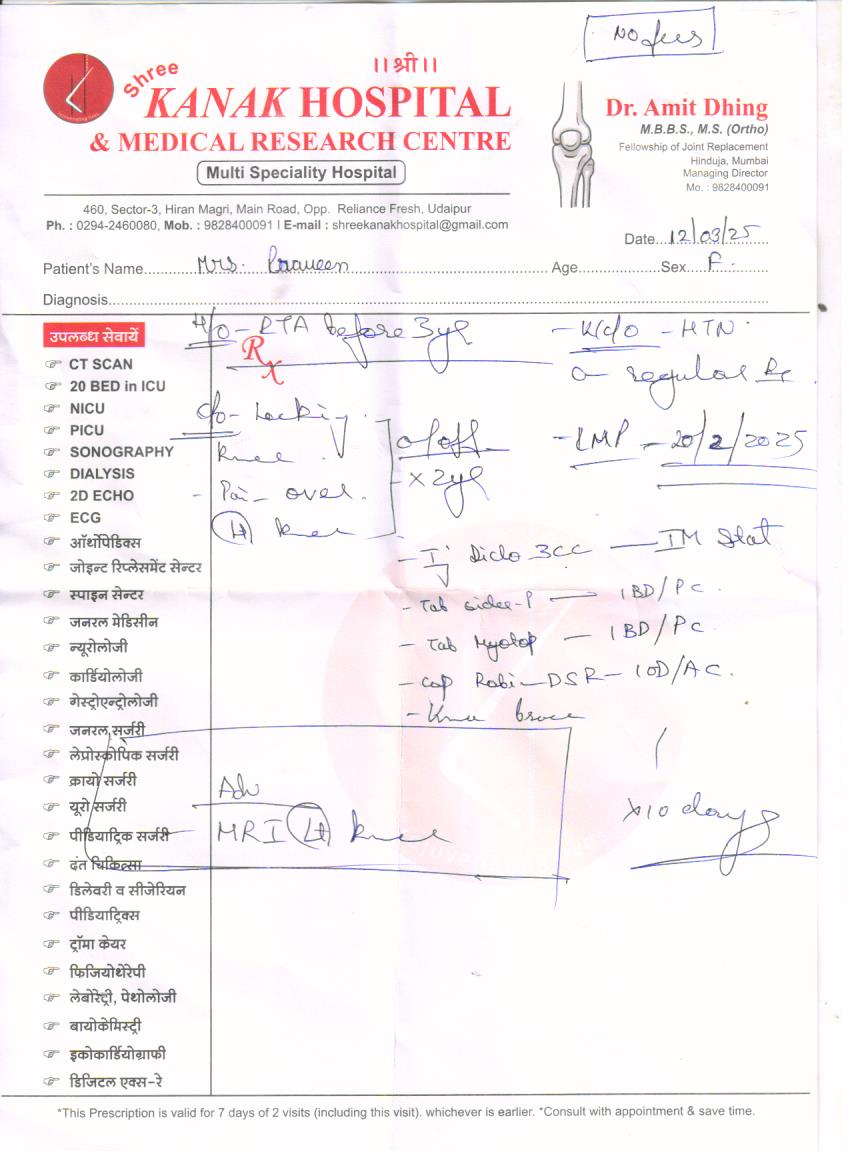 NO fees
।।श्री।।
Shree
KANAK HOSPITAL
& MEDICAL RESEARCH CENTRE
Multi Speciality Hospital
Dr. Amit Dhing
M.B.B.S., M.S. (Ortho)
Fellowship of Joint Replacement
Hinduja, Mumbai
Managing Director
Mo. : 9828400091
460, Sector-3, Hiran Magri, Main Road, Opp. Reliance Fresh, Udaipur
Ph. : 0294-2460080, Mob. : 9828400091 I E-mail : shreekanakhospital@gmail.com
Date...12/03/25
Patient's Name...Mrs. Praveen...Age...Sex...F.
Diagnosis...
H/o - RTA before 3yr
- K/c/o - HTN
Rx
on regular Rx
c/o - Locking
knee
- Pain over
Lt knee
on/off
x 2yr
- LMP - 20/2/2025
- Inj Diclo 3CC — IM Stat
- Tab - P — 1BD/PC
- Tab Myotop — 1BD/PC
- Cap Rabi-DSR - 1OD/AC.
- Knee brace
x10 days
Adv
MRI Lt knee
उपलब्ध सेवायें
CT SCAN
20 BED in ICU
NICU
PICU
SONOGRAPHY
DIALYSIS
2D ECHO
ECG
ऑर्थोपेडिक्स
जोइन्ट रिप्लेसमेंट सेन्टर
स्पाइन सेन्टर
जनरल मेडिसीन
न्यूरोलोजी
कार्डियोलोजी
गेस्ट्रोएन्ट्रोलोजी
जनरल सर्जरी
लेप्रोस्कोपिक सर्जरी
क्रायो सर्जरी
यूरो सर्जरी
पीडियाट्रिक सर्जरी
दंत चिकित्सा
डिलेवरी व सीजेरियन
पीडियाट्रिक्स
ट्रॉमा केयर
फिजियोथेरेपी
लेबोरेट्री, पेथोलोजी
बायोकेमिस्ट्री
इकोकार्डियोग्राफी
डिजिटल एक्स-रे
*This Prescription is valid for 7 days of 2 visits (including this visit). whichever is earlier. *Consult with appointment & save time.